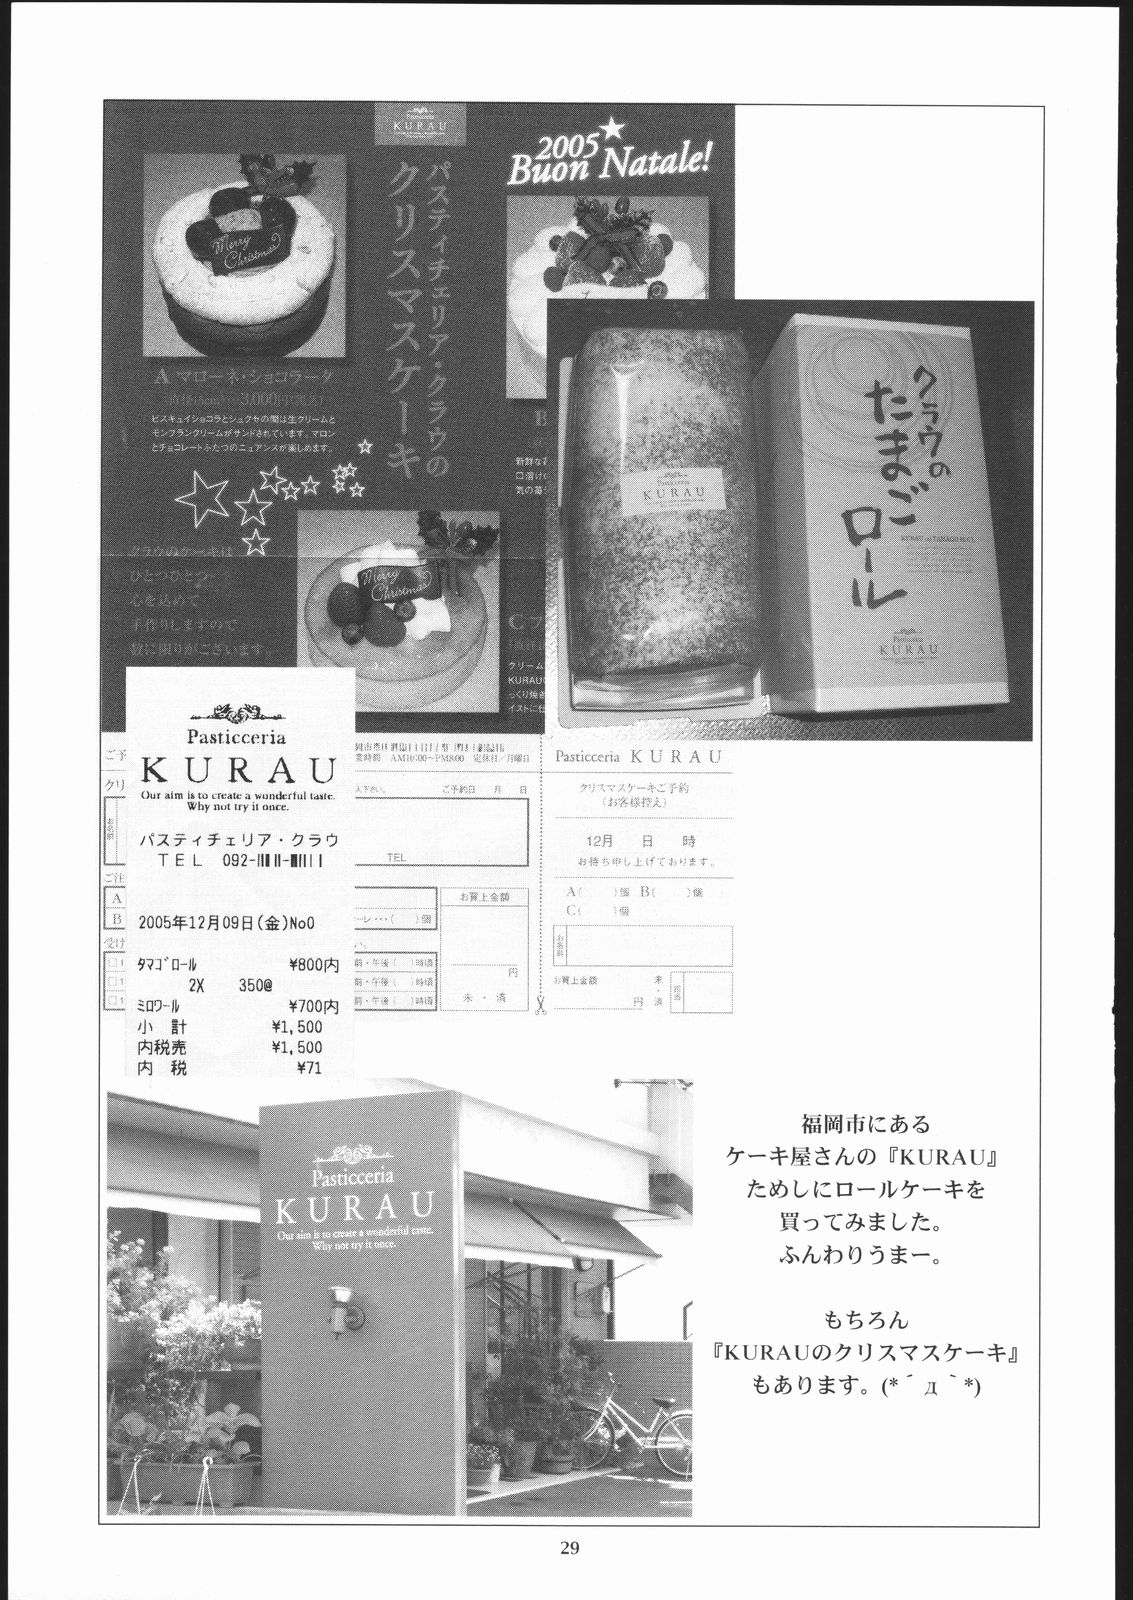 Pasticceria
KURAU
2005
Buon Natale!
パスティチェリア・クラウの
クリスマスケーキ
Merry
Christmas
A マローネ・ショコラータ
ビスキュイショコラとシュクセの間は生クリームと
モンブランクリームがサンドされています。マロン
とチョコレートふたつのニュアンスが楽しめます。
B
新鮮な
口溶け
気の苺
クラウのケーキは
ひとつひとつ
心を込めて
手作りしますので
数に限りがございます。
Merry
Christmas
C
クリーム
KURAU
っくり焼き
イストに仕
Pasticceria
KURAU
クラウの
たまご
ロール
KURAU no TAMAGO ROLL
Pasticceria
KURAU
Pasticceria
KURAU
Our aim is to create a wonderful taste.
Why not try it once.
パスティチェリア・クラウ
TEL 092-
2005年12月09日(金)No0
タマゴロール ¥800内
2X 350@
ミロワール ¥700内
小 計 ¥1,500
内税売 ¥1,500
内 税 ¥71
ご予
クリ
ご注
A
B
受け
業時間 AM10:00〜PM8:00 定休日/月曜日
入下さい。 ご予約日 月 日
TEL
お買上金額
ーレ・・・( )個
い。
前・午後( )時頃
前・午後( )時頃
前・午後( )時頃
円
未・済
Pasticceria KURAU
クリスマスケーキご予約
(お客様控え)
12月 日 時
お待ち申し上げております。
A( )個 B( )個
C( )個
お名前
お買上金額 未・済
円
担当
Pasticceria
KURAU
Our aim is to create a wonderful taste.
Why not try it once.
福岡市にある
ケーキ屋さんの『KURAU』
ためしにロールケーキを
買ってみました。
ふんわりうまー。
もちろん
『KURAUのクリスマスケーキ』
もあります。(*´д｀*)
29